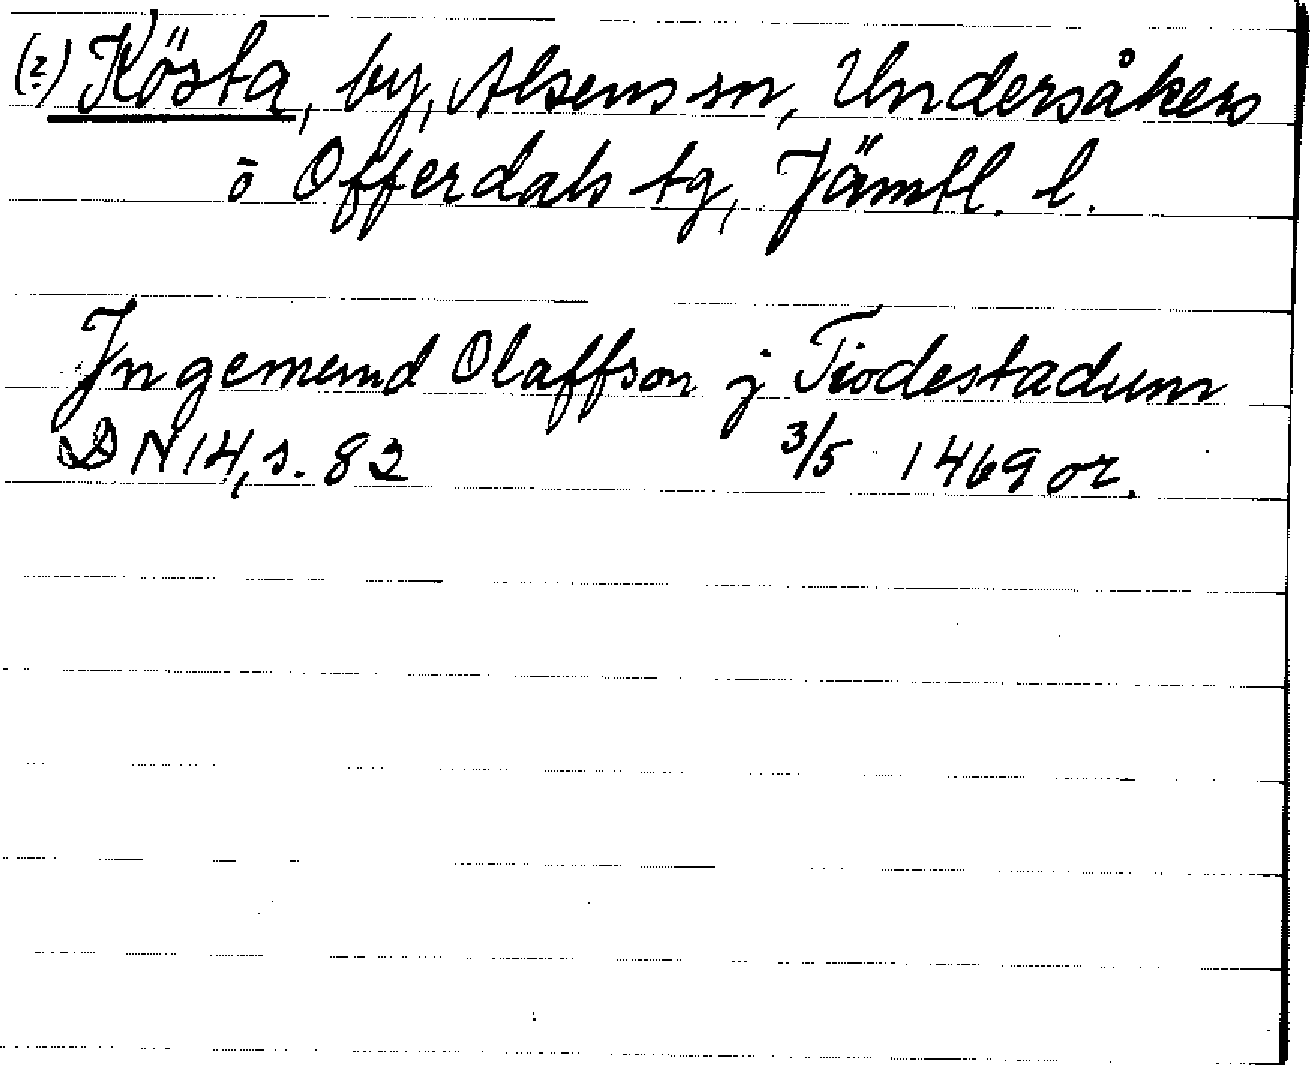 (?) Kösta, by, Alsens sn, Undersåkers
o Offerdals tg, Jämtl. l.
Jngemund Olaffson j Tiodestadum
DN 14, s. 82 3/5 1469 or.